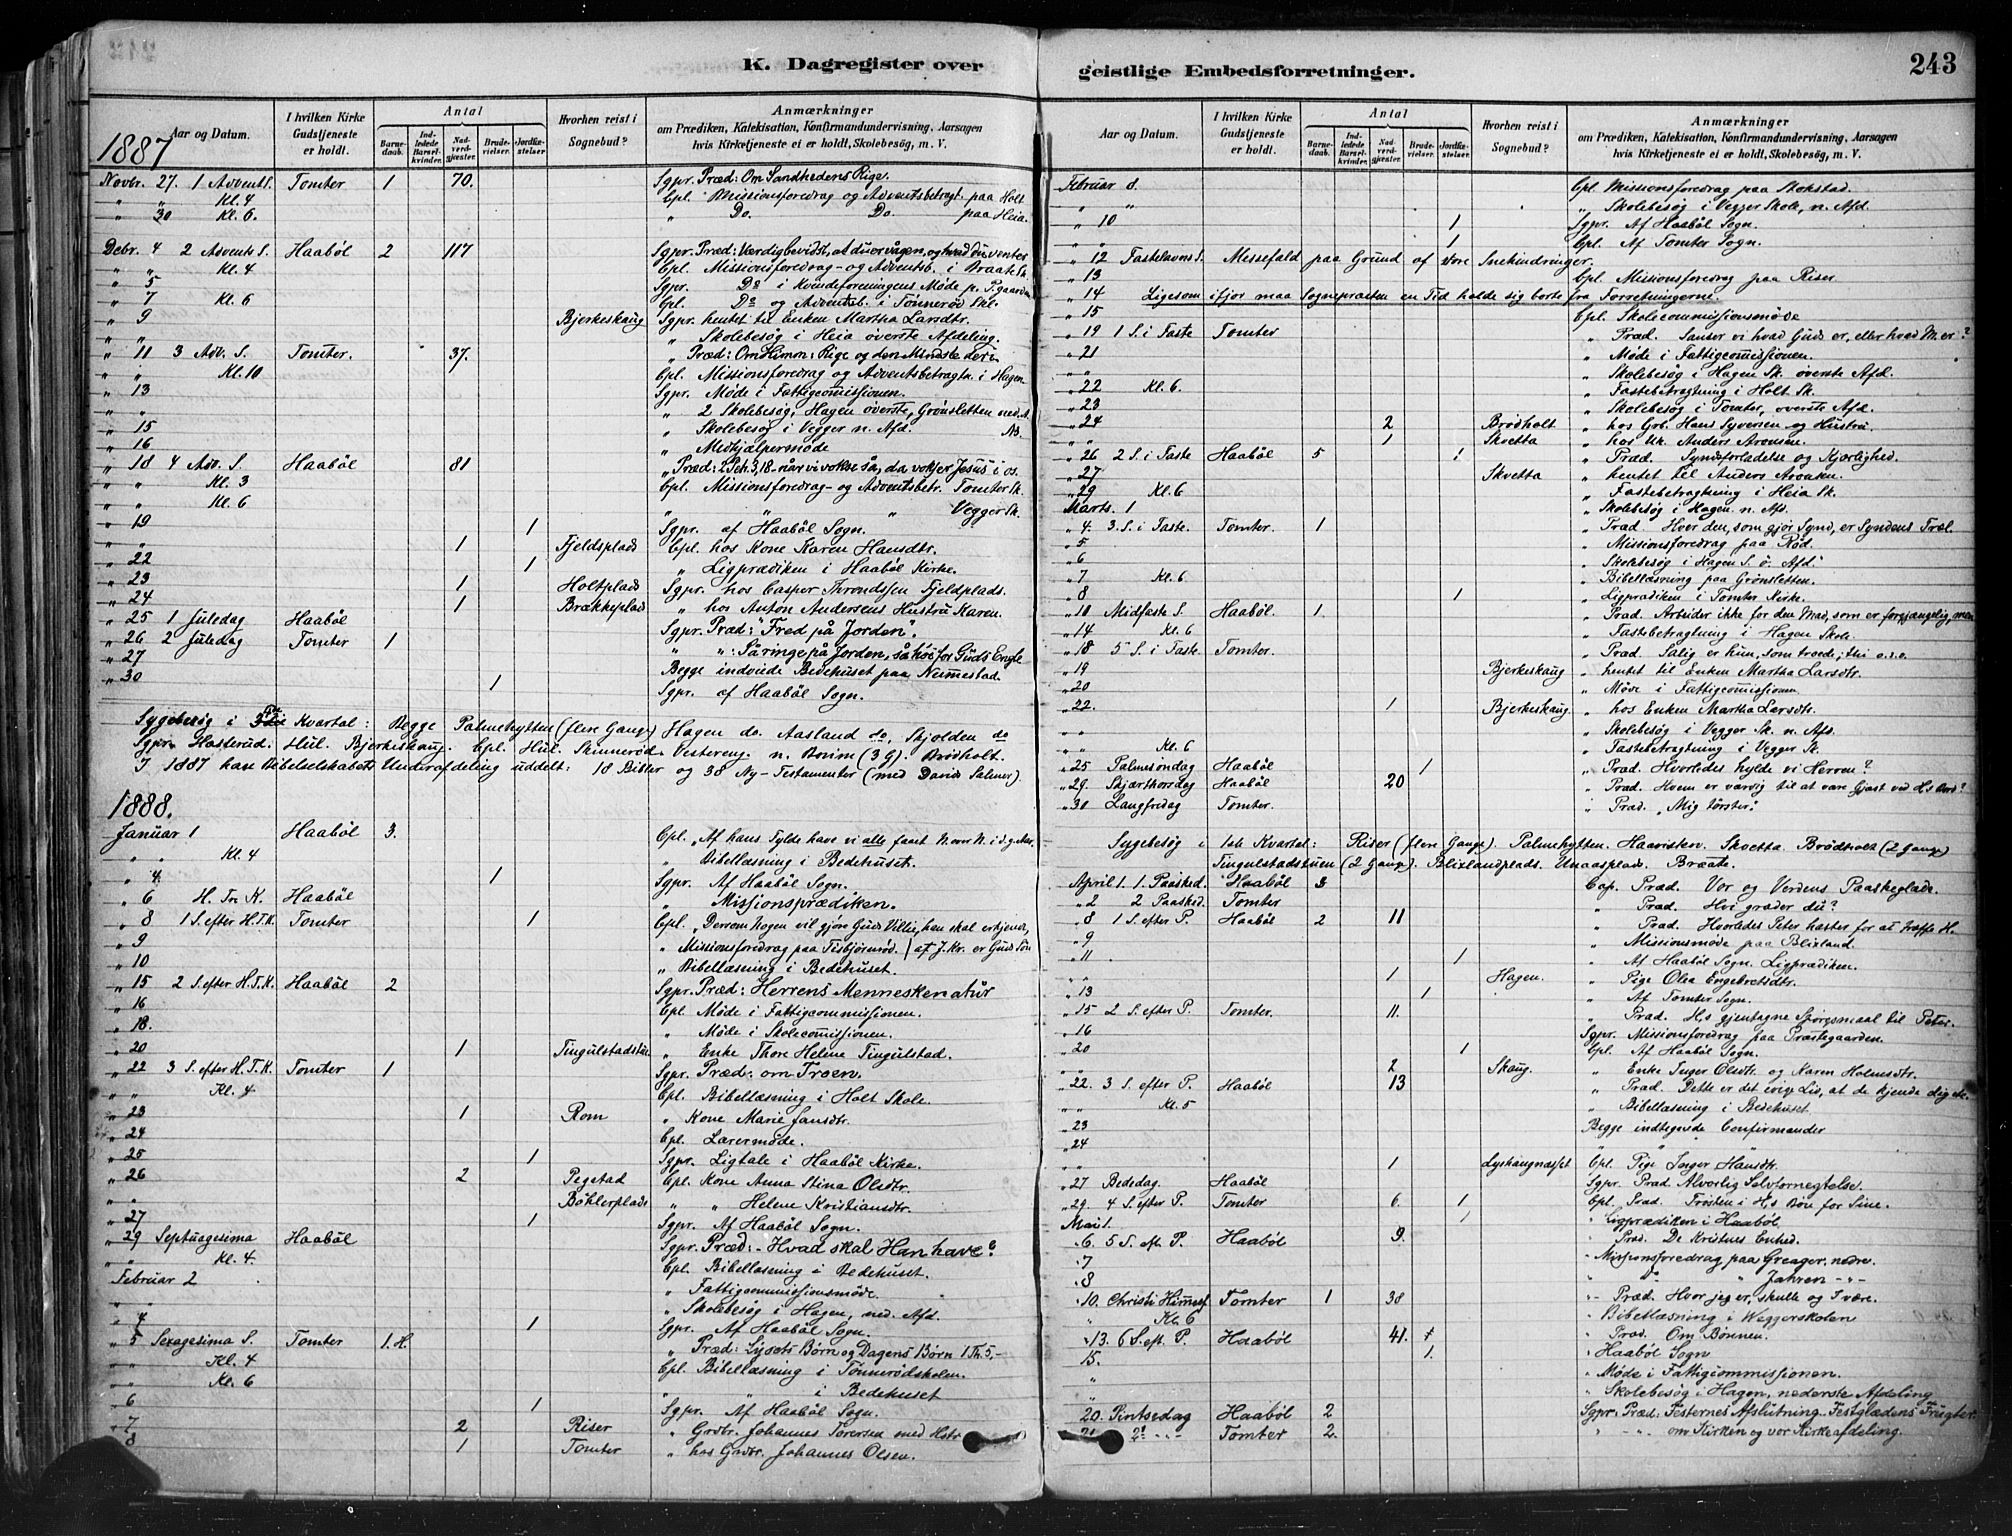 K. Dagregister over
Aar og Datum.
I hvilken Kirke Gudstjeneste er holdt.
Antal
Barnedaab.
Indledede Barselkvinder.
Nadverdgjester.
Brudevielser.
Jordfæstelser.
Hvorhen reist i Sognebud?
Anmærkninger
om Prædiken, Katekisation, Konfirmandundervisning, Aarsagen
hvis Kirketjeneste ei er holdt, Skolebesøg, m. V.
1887
Novbr. 27. 1 Advent S. Tomter 1 70. Sgpr. Præd: Om Sandhedens Rige.
" " Kl. 4 Cpl. Missionsforedrag og Adventsbetragt. paa Holt
" 30 Kl. 6. " Do. Do. paa Heia.
Debr. 4 2 Advents S. Haabøl 2 117 Sgpr. Præd: Værdigbevidst, at du er vågen, og hvad du ventes
" " Kl. 4 Cpl. Missionsforedrag- og Adventsb. i Braate Sk.
" 5 Sgpr. Do i Kvindeforeningens Møde p. P.gaarden
" 7 Kl. 6 Cpl. Do og Adventsb. i Tønnerød Skl.
" 9 Bjerkeskaug Sgpr. hentet til Enken Martha Larsdtr.
" " " Skolebesøg i Heia øverste Afdeling.
" 11 3 Adv. S. Tomter. 37. " Præd: Om Himn. Rige og den Mindste deri.
" " Kl. 10 Cpl. Missionsforedrag og Adventsbetragtn. i Hagen
" 13 Sgpr. Møde i Fattigcommissionen.
" " " 2 Skolebesøg, Hagen øverste, Grønsletten ned. A.
" 15 " Skolebesøg i Vegger n. Afd.
" 16 " Medhjælpermøde
" 18 4 Adv. S. Haabøl 81 " Præd: 2 Pet. 3, 18 - når vi vokse så, da vokser Jesus i os.
" " Kl. 3 Cpl. Missionsforedrag- og Adventsbetr. Tomter Sk.
" " Kl. 6 " " " Vegger Sk.
" 19 1 Sgpr. af Haabøl Sogn.
" " 1 Fjeldsplads Cpl. hos Kone Karen Hansdtr.
" 22 1 " Ligprædiken i Haabøl Kirke.
" 23 1 Holtplads Sgpr. hos Casper Throndsen Fjeldplads.
" 24 1 Brækkeplads " hos Anton Andersens Hustru Karen.
" 25 1 Juledag Haabøl Sgpr. Præd: "Fred på Jorden".
" 26 2 Juledag Tomter 1 " ": Så ringe på Jorden, så høi for Guds Engle
" 27 Begge indviede Bedehuset paa Nummestad.
" 30 1 Sgpr. af Haabøl Sogn.
Sygebesøg i Kvartal: Begge Palmehytten (flere Gange) Hagen do. Aasland do. Skjolden do
Sgpr. Hasterud. Hül. Bjerkeskaug. Cpl. Hül. Skinnerød. Vestereng. n. Brim (3 G). Brødholt.
I 1887 have Bibelselskabets Underafdeling uddelt: 18 Bibler og 38 Ny-Testamenter (med Davids Salmer).
1888.
Januar 1 Haabøl 3. Cpl. "Af hans Fylde have vi alle faaet N. over N. i d. g. Aar.
" " Kl. 4 " Bibellæsning i Bedehuset.
" 4. 1 Sgpr. Af Haabøl Sogn.
" 6 H. Tr. K. Haabøl " Missionsprædiken.
" 8 1 S. efter H.T.K. Tomter 1 Cpl. "Dersom Nogen vil gjøre Guds Villie, han skal erkjende,
" 9 " Missionsforedrag paa Tisbjørnrød. / at J. Kr. er Guds Søn
" 10 " Bibellæsning i Bedehuset.
" 15 2 S. efter H.T.K. Haabøl 2 Sgpr. Præd: Herrens Menneskenatur
" 16 Cpl. Møde i Fattigcommissionen.
" 18. " Møde i Skolecommissionen.
" 20 1 Tingulstadstuen " Enke Thore Helene Tingulstad.
" 22 3 S. efter H.T.K. Tomter 1 Sgpr. Præd: om Troen.
" " Kl. 4 Cpl. Bibellæsning i Holt Skole.
" 23 1 Rom " Kone Marie Jansdtr.
" 24 Cpl. Lærermøde.
" 25 1 Sgpr. Ligtale i Haabøl Kirke.
" 26 2 Pegstad Cpl. Kone Anna Stina Olsdtr.
" " Bøhlerplads " " Helene Kristiansdtr.
" 27 1 Sgpr. Af Haabøl Sogn.
" 29 Septuagesima Haabøl Sgpr. Præd: - Hvad skal Han have?
" " Kl. 4. Cpl. Bibellæsning i Bedehuset.
Februar 2 " Fattigcommissionsmøde.
" " " Skolebesøg i Hagen, ned. Afd.
" 4 1 Sgpr. Af Haabøl Sogn.
" 5 Sexagesima S. Tomter 1. H. " Præd: Lysets Børn og Dagens Børn 1 Th. 5,-
" " Kl. 4 Cpl. Bibellæsning i Tønnerødskolen.
" " Kl. 6 " " i Bedehuset
" 6 1 Sgpr. Af Haabøl Sogn.
" 7 2 Riser " Grdbr. Johannes Torersen med Hstr
" 8 1 Tomter " hos Grdbr. Johannes Olsen.
geistlige Embedsforretninger.
243
Aar og Datum.
I hvilken Kirke Gudstjeneste er holdt.
Antal
Barnedaab.
Indledede Barselkvinder.
Nadverdgjester.
Brudevielser.
Jordfæstelser.
Hvorhen reist i Sognebud?
Anmærkninger
om Prædiken, Katekisation, Konfirmandundervisning, Aarsagen
hvis Kirketjeneste ei er holdt, Skolebesøg, m. V.
Februar 8. Cpl. Missionsforedrag paa Stokstad.
" " " Skolebesøg i Vegger Skole, n. Afd.
" 10 1 Sgpr. Af Haabøl Sogn.
" " 1 Cpl. Af Tomter Sogn.
" 12 Fastelavns S. Messefald paa Grund af store Snehindringer.
" 13 Cpl. Missionsforedrag paa Riser
" 14 Ligesom ifjor maa Sognepræsten en Tid holde sig borte fra Forretningerne.
" 15 Cpl. Skolecommissionsmøde
" 19 1 S. i Faste Tomter " Præd. Sanser vi hvad Guds er, eller hvad M. er?
" 21 " Møde i Fattigcommissionen.
" " " Skolebesøg i Hagen Sk. øverste Afd.
" 22 Kl. 6. " Fastebetragtning i Holt Sk.
" 23 " Skolebesøg i Tomter, øverste Afd.
" 24 2 Brødholt " hos Grb. Hans Syversen og Hustru.
" " 1 Skoetta " hos Uk. Anders Aronsen.
" 26 2 S. i Faste Haabøl 5 1 " Præd. Syndsforladelse og Kjærlighed.
" 27 Skvetta " hentet til Anders Aronsen.
" 29 Kl. 6 " Fastebetragtning i Heia Sk.
Marts. 1 " Skolebesøg i Hagen n. Afd.
" 4. 3. S. i Faste Tomter. 1 " Præd. Hver den, som gjør Synd, er Syndens Træl.
" 5 " Missionsforedrag paa Rød.
" 6 " Skolebesøg i Hagen S. ø. Afd.
" 7 Kl. 6 " Bibellæsning paa Grønsletten.
" 8 1 " Ligprædiken i Tomter Kirke.
" 10 Midfaste S. Haabøl. 1. " Præd. Arbeider ikke for den Mad, som er forgjængelig, men
" 14 Kl. 6 " Fastebetragtning i Hagen Skole.
" 18 5 S. i Faste Tomter. " Præd. Salig er hun, som troede; thi o.s.v.
" 19 Bjerkeskaug " hentet til Enken Martha Larsdtr.
" 20 " Møde i Fattigcommissionen
" 22. 1 Bjerkeskaug " hos Enken Martha Larsdtr.
" " " Skolebesøg i Vegger Sk. n. Afd.
" " Kl. 6 " Fastebetragtning i Vegger Sk.
" 25 Palmesøndag Haabøl 1 " Præd. Hvorledes hylde vi Herren?
" 29. Skjærthorsdag Haabøl 20 " Præd. Hvem er værdig til at være Gjæst ved H.s Bord?
" 30 Langfredag Tomter. " Præd. "Mig tørster".
Sygebesøg i 1ste Kvartal: Riser (flere Gange). Palmehytten. Haavisken. Skoetta. Brødholt (2 Gange)
Tingulstadstuen (2 Gange). Blixlandplads. Unaasplads. Braate.
April 1. 1. Paasked. Haabøl 3 Cap. Præd. Vor og Verdens Paaskeglæde.
" 2 2 Paasked. Tomter " Præd. Hvi græder du?
" 8 1 S. efter P. Haabøl 2 11 " Præd. Hvorledes Peter haster for at træffe H.
" 9 " Missionsmøde paa Blixland.
" 11 1 " Af Haabøl Sogn. Ligprædiken.
" 1 Hagen. " Pige Olea Engebretsdtr.
" 13 1 " Af Tomter Sogn.
" 15 2 S. efter P. Tomter. 11. " Præd. H.s gjentagne Spørgsmaal til Peter.
" 16 Sgpr. Missionsforedrag paa Præstegaarden.
" 20 1 Cpl. Af Haabøl Sogn.
" " 2 Skaug. " Enke Inger Olsdtr. og Karen Holmsdtr.
" 22. 3 S. efter P. Haabøl 13 " Præd. Dette er det evige Liv, at de kjende dig etc.
" " Kl. 5 " Bibellæsning i Bedehuset.
" 23 Begge indtegnede Confirmander
" 24 " "
" " 1 Lyshaugnæsset Cpl. Pige Inger Hansdtr.
" 27 Bededag. Haabøl Sgpr. Præd. Alvorlig Selvfornegtelse.
" 29. 4 S. efter P. Tomter 6. 1 Cpl. Præd. Trøsten i H.s Bøn for Sine.
Mai 1. 1 " Ligprædiken i Haabøl
" 6. 5 S. eft. P. Haabøl 9. " Præd. De Kristnes Enhed.
" 7 " Missionsforedrag paa Greager, nedre.
" 8 " Do " Jahren - " -
" 10. Christi Himmelf. Tomter 1 38 " Præd. Hvor jeg er, skulle og I være.
" Kl. 6 " Bibellæsning i Veggerskolen
" 13. 6 S. eft. P. Haabøl 41. " Præd. Om Bønnen.
" 15. 1. " Haabøl Sogn
" " Møde i Fattigcommissionen.
" " Skolebesøg i Hagen, nederste Afdeling
" 20. Pintsedag Haabøl 2 Sgpr. Præd: Festernes Afslutning. Festglædens Frugter
" 21 2. - " - Tomter 2. " - " - om Kirken og vor Kirkeafdeling.